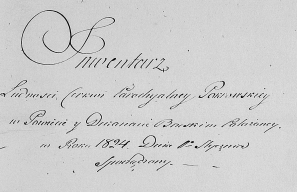 Inwentarz
Ludności Cerkwi Parachyalney Pokrowskiey
w Powiecie y Dekanacie Brzeskim
w Roku 1824. Dnia 1º Stycznia
Sporządzony.